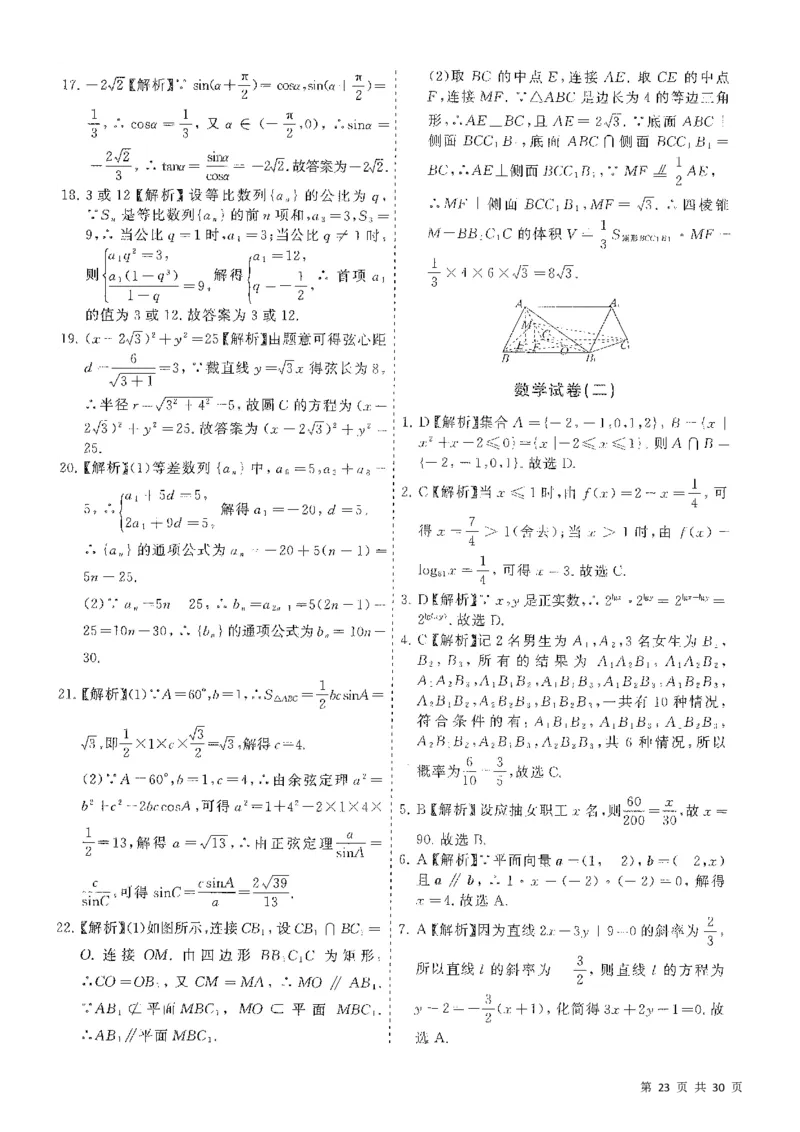 17. －2√2【解析】∵ sin(α＋π/2)＝ cosα,sin(α＋π/2)＝
1/3，∴ cosα ＝ 1/3，又 α ∈ (－π/2,0)，∴sinα ＝
－2√2/3，∴ tanα＝ sinα/cosα ＝ －2√2.故答案为－2√2.
18. 3 或 12【解析】设等比数列{aₙ} 的公比为 q，
∵Sₙ 是等比数列{aₙ}的前 n 项和,a₃＝3,S₃＝
9,∴ 当公比 q＝1 时,a₁＝3;当公比 q ≠ 1 时，
则{a₁q²＝3, a₁(1－q³)/(1－q)＝9, 解得{a₁＝12, q＝－1/2, ∴ 首项 a₁
的值为 3 或 12. 故答案为 3 或 12.
19. (x－2√3)²＋y²＝25【解析】由题意可得弦心距
d＝6/√(3＋1)＝3, ∵截直线 y＝√3x 得弦长为 8，
∴半径 r＝√(3²＋4²)＝5, 故圆 C 的方程为 (x－
2√3)²＋y²＝25. 故答案为 (x－2√3)²＋y²＝
25.
20.【解析】(1)等差数列 {aₙ} 中, a₆＝5,a₂＋a₈＝
5,∴{a₁＋5d＝5, 2a₁＋9d＝5, 解得 a₁＝－20, d＝5.
∴ {aₙ} 的通项公式为 aₙ＝－20＋5(n－1)＝
5n－25.
(2)∵ aₙ＝5n－25, ∴ bₙ＝a₂ₙ₋₁＝5(2n－1)－
25＝10n－30, ∴ {bₙ}的通项公式为bₙ＝ 10n－
30.
21.【解析】(1)∵A＝60°,b＝1,∴S△ABC＝1/2bcsinA＝
√3,即1/2×1×c×√3/2＝√3,解得 c＝4.
(2)∵A＝60°,b＝1,c＝4,∴由余弦定理 a²＝
b²＋c²－2bccosA,可得 a²＝1＋4²－2×1×4×
1/2＝13,解得 a＝√13,∴由正弦定理 a/sinA＝
c/sinC,可得 sinC＝csinA/a＝2√39/13.
22.【解析】(1)如图所示,连接CB₁，设CB₁∩BC₁＝
O. 连接 OM. 由四边形 BB₁C₁C 为矩形，
∴CO＝OB₁，又 CM＝MA，∴ MO ∥ AB₁.
∵AB₁ ⊄ 平面 MBC₁， MO ⊂ 平面 MBC₁.
∴AB₁∥平面 MBC₁.
(2)取 BC 的中点 E,连接 AE. 取 CE 的中点
F,连接 MF. ∵△ABC 是边长为 4 的等边三角
形,∴AE⊥BC,且 AE＝2√3. ∵底面 ABC⊥
侧面 BCC₁B₁,底面 ABC∩侧面 BCC₁B₁＝
BC,∴AE⊥侧面BCC₁B₁,∵ MF ∥＝ 1/2 AE，
∴MF⊥侧面 BCC₁B₁,MF＝√3. ∴四棱锥
M－BB₁C₁C 的体积 V＝1/3 S矩形BCC₁B₁·MF＝
1/3×4×6×√3＝8√3.
A A₁
M C₁
E F O C₁
B B₁
数学试卷(二)
1. D【解析】集合 A＝{－2,－1,0,1,2}, B＝{x|
x²＋x－2≤0}＝{x|－2≤x≤1}. 则 A∩B＝
{－2,－1,0,1}. 故选 D.
2. C【解析】当 x≤1 时,由 f(x)＝2－x＝1/4, 可
得 x＝7/4＞1(舍去);当 x＞1 时,由 f(x)＝
log₈₁x＝1/4, 可得 x＝3. 故选 C.
3. D【解析】∵ x,y 是正实数,∴ 2^lgx·2^lgy＝2^(lgx＋lgy)＝
2^lg(xy). 故选 D.
4. C【解析】记 2 名男生为 A₁,A₂,3 名女生为 B₁、
B₂, B₃, 所有的结果为 A₁A₂B₁, A₁A₂B₂,
A₁A₂B₃,A₁B₁B₂,A₁B₁B₃,A₁B₂B₃,A₂B₂B₃,
A₂B₁B₂,A₂B₁B₃,B₁B₂B₃,一共有 10 种情况,
符合条件的有: A₁B₁B₂, A₁B₁B₃, A₁B₂B₃,
A₂B₁B₂,A₂B₁B₃,A₂B₂B₃,共 6 种情况,所以
概率为6/10＝3/5,故选 C.
5. B【解析】设应抽女职工 x 名,则60/200＝x/30,故 x＝
90. 故选 B.
6. A【解析】∵平面向量 a＝(1,－2),b＝(－2,x)
且 a∥b, ∴ 1·x－(－2)·(－2)＝0, 解得
x＝4. 故选 A.
7. A【解析】因为直线 2x－3y＋9＝0 的斜率为 2/3，
所以直线 l 的斜率为－3/2, 则直线 l 的方程为
y－2＝－3/2(x＋1), 化简得 3x＋2y－1＝0. 故
选 A.
第 23 页 共 30 页